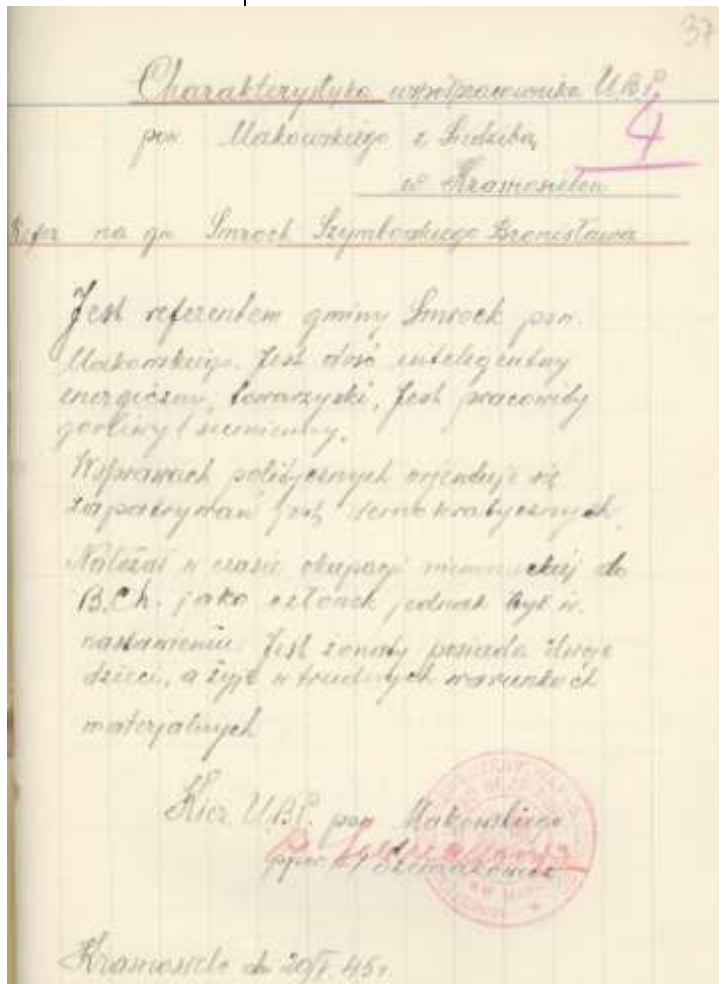 37
Charakterystyka współpracownika U.B.P.
pow Makowskiego z Siedzibą
4
w Krasnosielcu
Refer na gm Smrock Szymborskiego Bronisława
Jest referentem gminy Smrock pow.
Makowskiego. Jest dość inteligentny
energiczny, towarzyski, Jest pracowity
gorliwy i sumienny.
W sprawach politycznych orjentuje się
zapatrywań jest demokratycznych.
Należał w czasie okupacji niemieckiej do
B.Ch. jako członek jednak był w.
nastawieniu Jest żonaty posiada dwoje
dzieci, a żyje w trudnych warunkach
materjalnych
Kier. U.B.P. pow Makowskiego
ppor
Krasnosielc dn 20/V 45r.